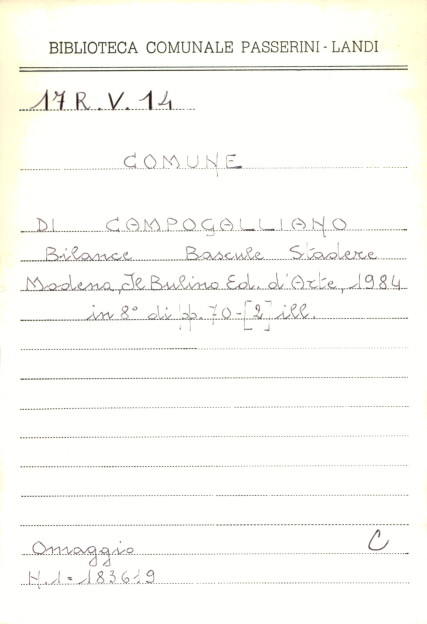 BIBLIOTECA COMUNALE PASSERINI - LANDI
17 R. V. 14
COMUNE
DI CAMPOGALLIANO
Bilance Bascule Stadere
Modena, Il Bulino Ed. d'Arte, 1984
in 8° di pp. 70-[2] ill.
Omaggio C
N. 1 = 183619